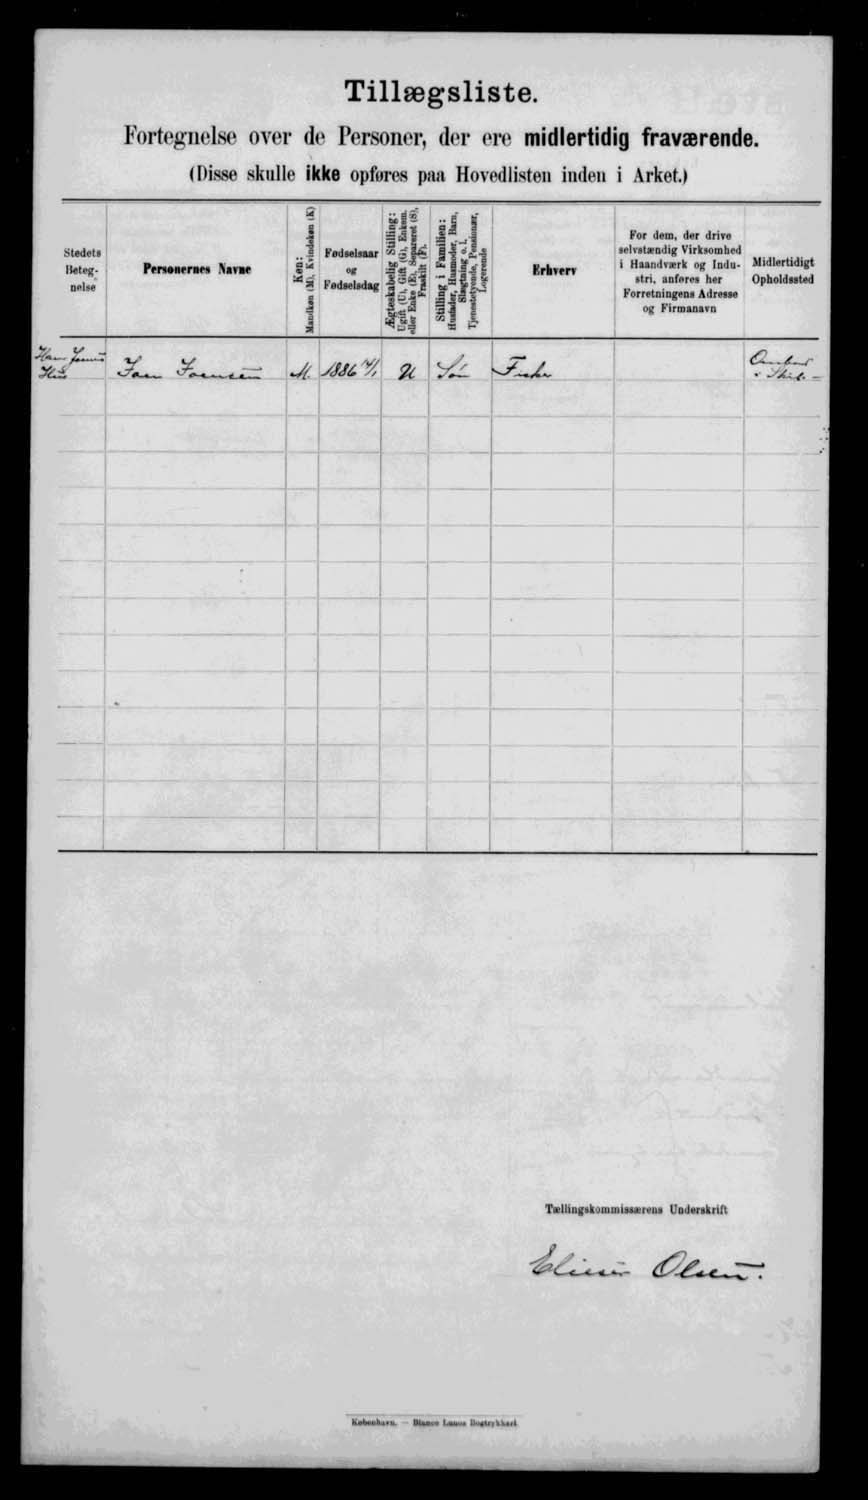 Tillægsliste.
Fortegnelse over de Personer, der ere midlertidig fraværende.
(Disse skulle ikke opføres paa Hovedlisten inden i Arket.)
Stedets
Beteg-
nelse
Personernes Navne
Køn:
Mandkøn (M), Kvindekøn (K)
Fødselsaar
og
Fødselsdag
Ægteskabelig Stilling:
Ugift (U), Gift (G), Enkem.
eller Enke (E), Separeret (S),
Fraskilt (F).
Stilling i Familien:
Husfader, Husmoder, Barn,
Slægtning o. l.
Tjenestetyende, Pensionær,
Logerende
Erhverv
For dem, der drive
selvstændig Virksomhed
i Haandværk og Indu-
stri, anføres her
Forretningens Adresse
og Firmanavn
Midlertidigt
Opholdssted
Hus
Joen Joensen M. 1886 U Søn Fisker
Ombord
i
Tællingskommissærens Underskrift
Elieser Olsen.
København. — Bianco Lunos Bogtrykkeri